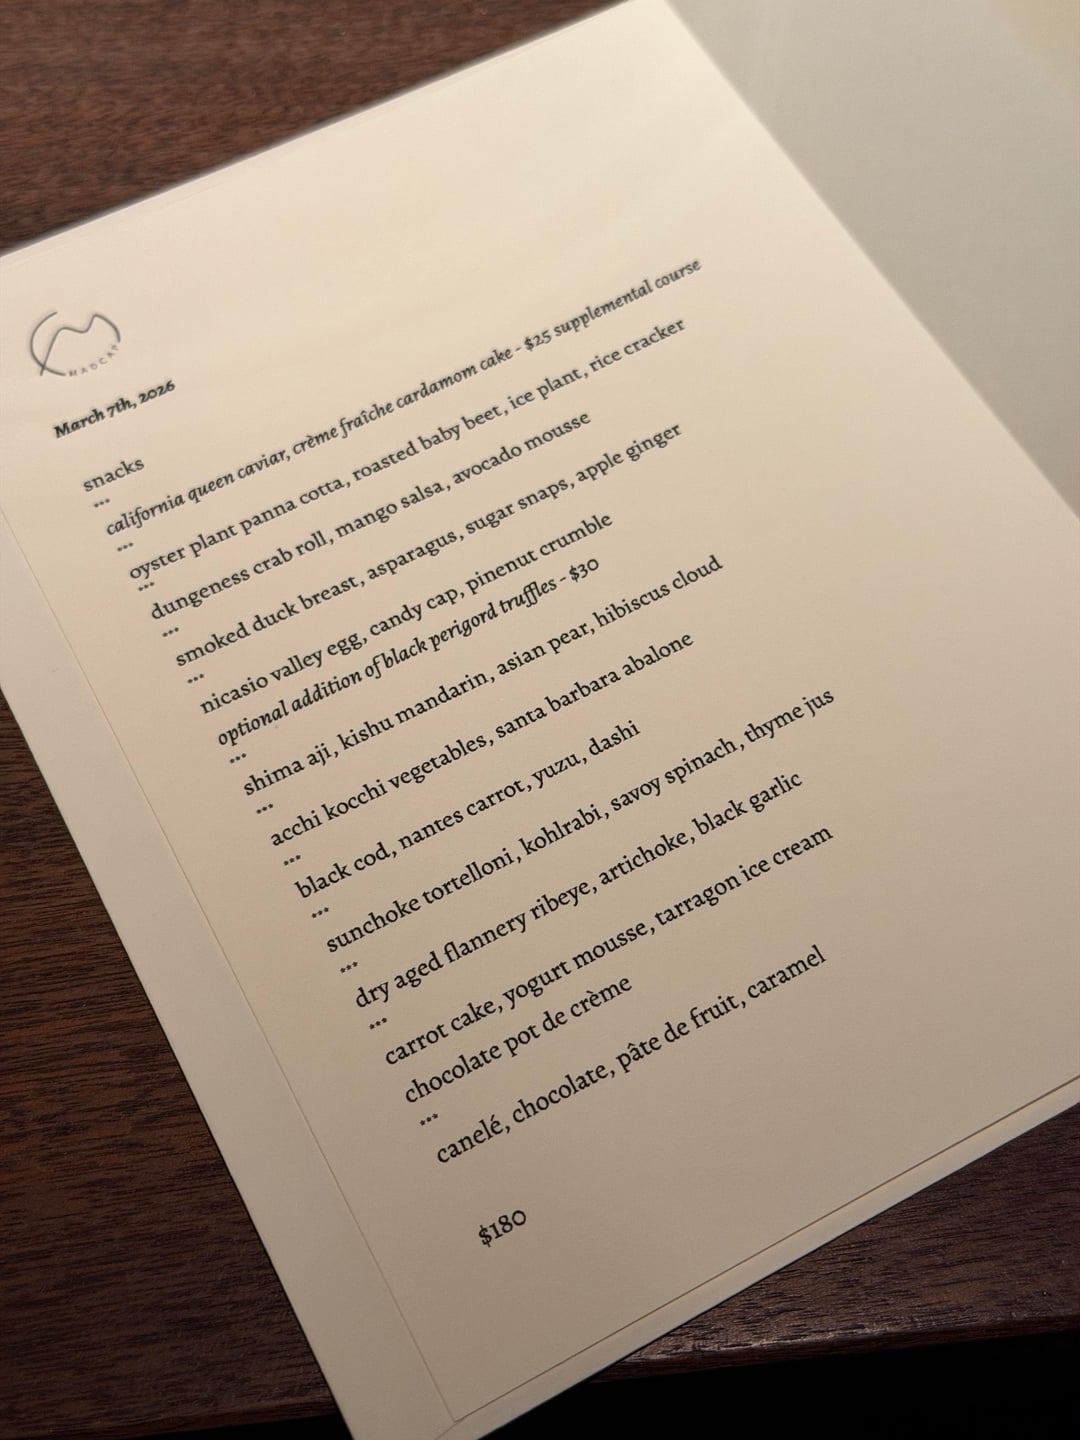 MADCAP
March 7th, 2026
snacks
...
california queen caviar, crème fraîche cardamom cake - $25 supplemental course
...
oyster plant panna cotta, roasted baby beet, ice plant, rice cracker
...
dungeness crab roll, mango salsa, avocado mousse
...
smoked duck breast, asparagus, sugar snaps, apple ginger
...
nicasio valley egg, candy cap, pinenut crumble
optional addition of black perigord truffles - $30
...
shima aji, kishu mandarin, asian pear, hibiscus cloud
...
acchi kocchi vegetables, santa barbara abalone
...
black cod, nantes carrot, yuzu, dashi
...
sunchoke tortelloni, kohlrabi, savoy spinach, thyme jus
...
dry aged flannery ribeye, artichoke, black garlic
...
carrot cake, yogurt mousse, tarragon ice cream
chocolate pot de crème
...
canelé, chocolate, pâte de fruit, caramel
$180